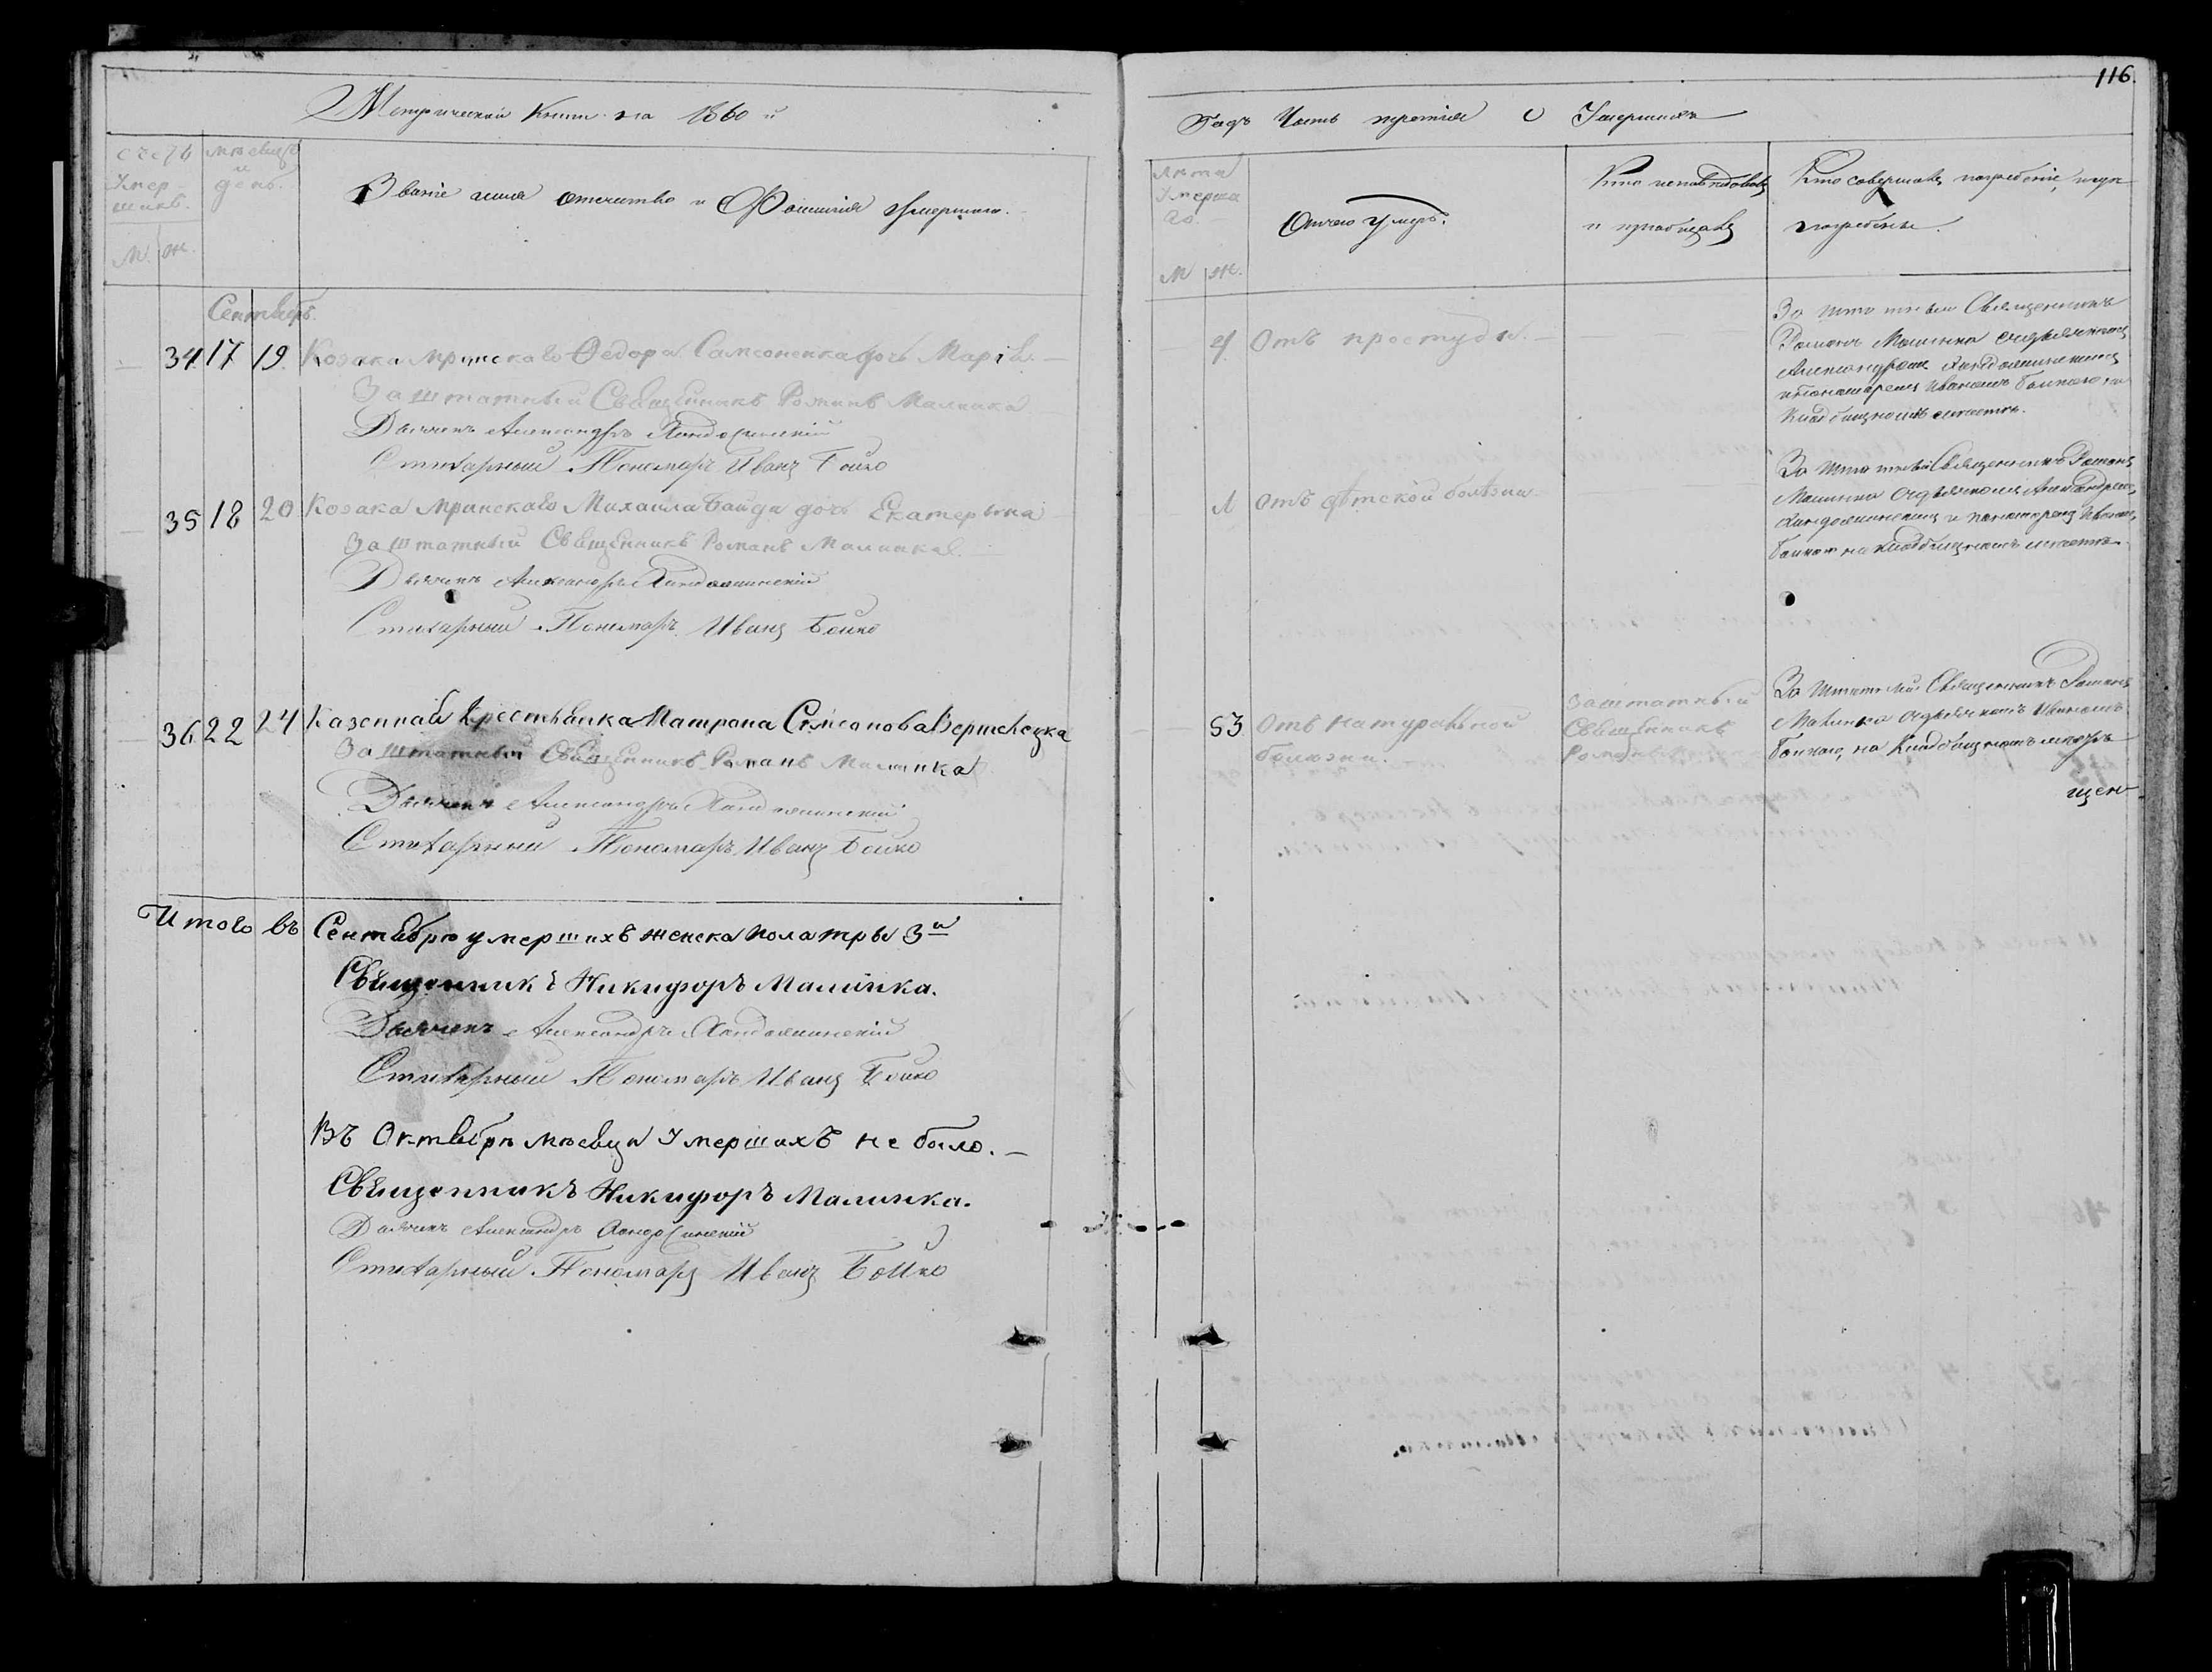 116.
Метрической Книги на 1860 й
Годъ Часть третія О Умершихъ
счетъ Умер шихъ.
мѣсяцъ и день.
Званіе имя отчество и Фамилія Умершаго.
М. Ж.
Лѣта Умерша го.
М Ж.
Отчего умеръ.
Кто исповѣдовалъ и пріобщалъ
Кто совершалъ погребеніе, и гдѣ погребены.
Сентябрь.
34 17 19 Козака Мринскаго Федора Самсоненка дочь Марія. —
Заштатный Священникъ Романъ Малинка
Дьячекъ Александръ
Стихарный Пономарь Иванъ Бойко
4 Отъ простуды. —
За штатный Священникъ
Романъ Малинка съ дьячкомъ
Александромъ
и пономаремъ Иваномъ Бойкою на
Кладбищномъ
35 18 20 Козака Мринскаго Михаила Байди дочь Екатерина
Заштатный Священникъ Романъ Малинка.
Дьячекъ Александръ
Стихарный Пономарь Иванъ Бойко
1 Отъ дѣтской болѣзни.
За штатный Священникъ Романъ
Малинка съ дьячкомъ Александромъ,
и пономаремъ Иваномъ,
Бойкою на кладбищномъ
36 22 24 Казенная Крестьянка Матрона
Заштатный Священникъ Романъ Малинка
Дьячекъ Александръ
Стихарный Пономарь Иванъ Бойко
53 Отъ натуральной
болюзни.
Заштатный
Священникъ
Романъ
За штатный Священникъ Романъ
Малинка съ дьячкомъ Иваномъ
Бойкою, на Кладбищномъ
щен
Итого въ Сентябрю умершихъ женска пола три 3и
Священникъ Никифоръ Малинка.
Дьячекъ Александръ
Стихарный Пономарь Иванъ Бойко
Въ Октябрѣ мѣсяцѣ Умершихъ не было. —
Священникъ Никифоръ Малинка.
Дьячекъ Александръ
Стихарный Пономарь Иванъ Бойко